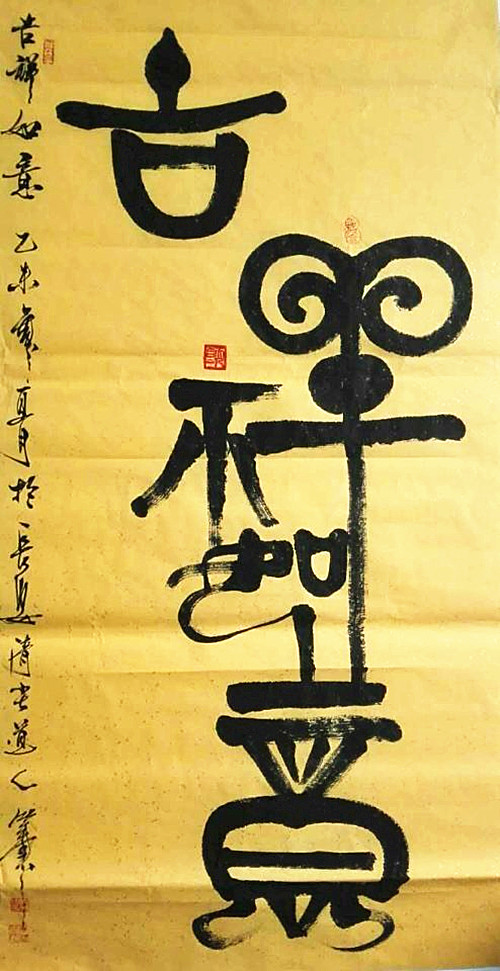 吉祥如意
吉祥如意 乙未年夏月於長安清虚道人